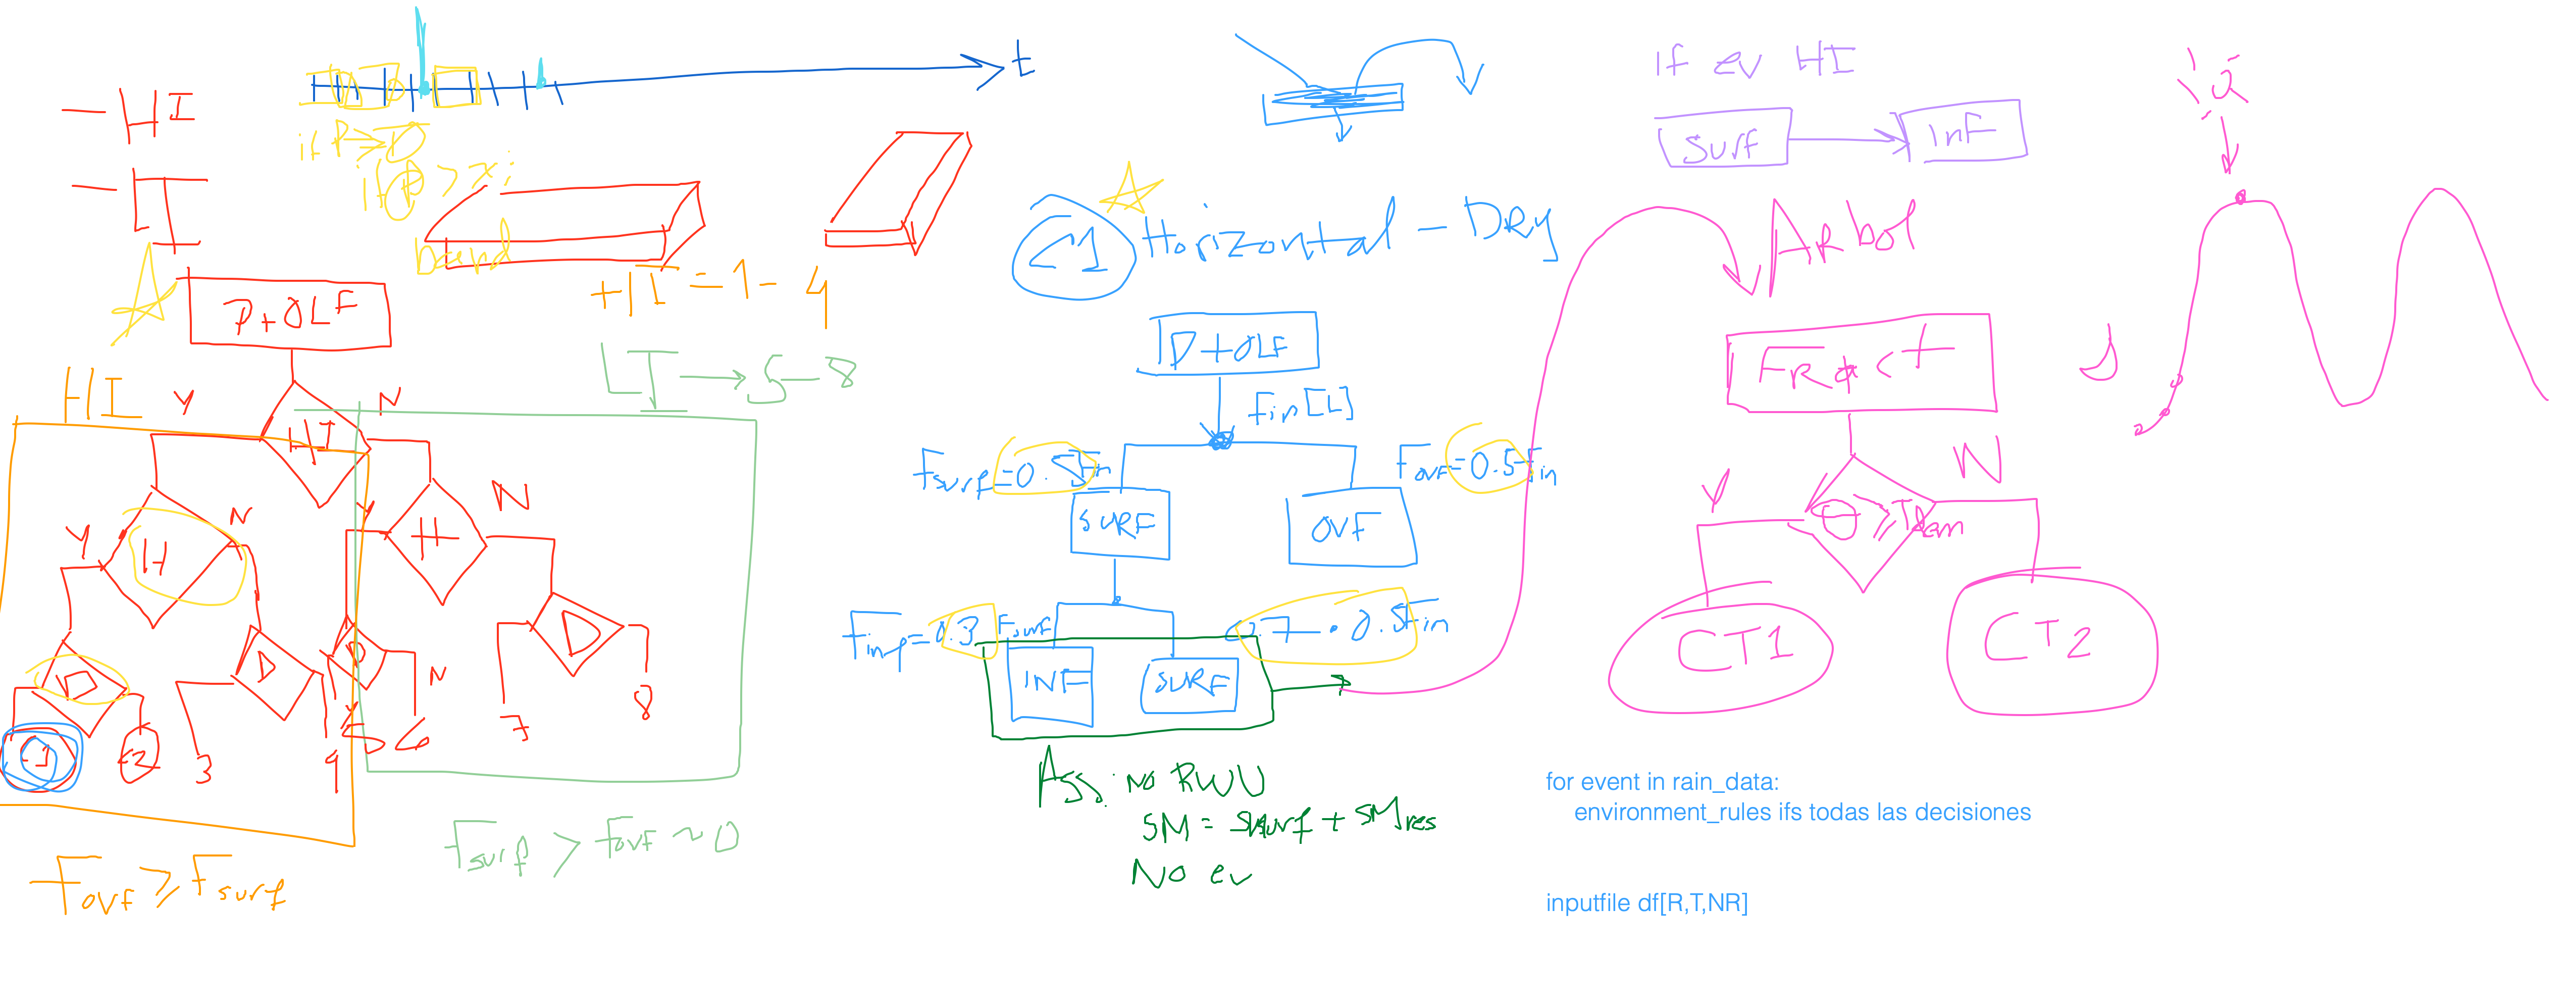 t
- HI
- LI
if P ≥ 0
if θ > x i
band
P + OLF
HI
Y
N
HI
Y
H
N
Y
H
N
D
D
D
N
D
C1
C2
3
4
5
6
7
8
+HI = 1 - 4
LI → 5 - 8
Fovf ≥ Fsurf
Fsurf > Fovf ~ 0
C1 Horizontal - DRY
P + OLF
Fin [L]
Fsurf = 0.5 Fin
Fovf = 0.5 Fin
SURF
OVF
Finf = 0.3 Fsurf
0.7 · 0.5 Fin
INF
SURF
Ass: no RWU
SM = SMsurf + SMres
No ev
if ev HI
surf
inf
Arbol
FRact
Y
N
CT1
CT2
for event in rain_data:
environment_rules ifs todas las decisiones
inputfile df[R,T,NR]